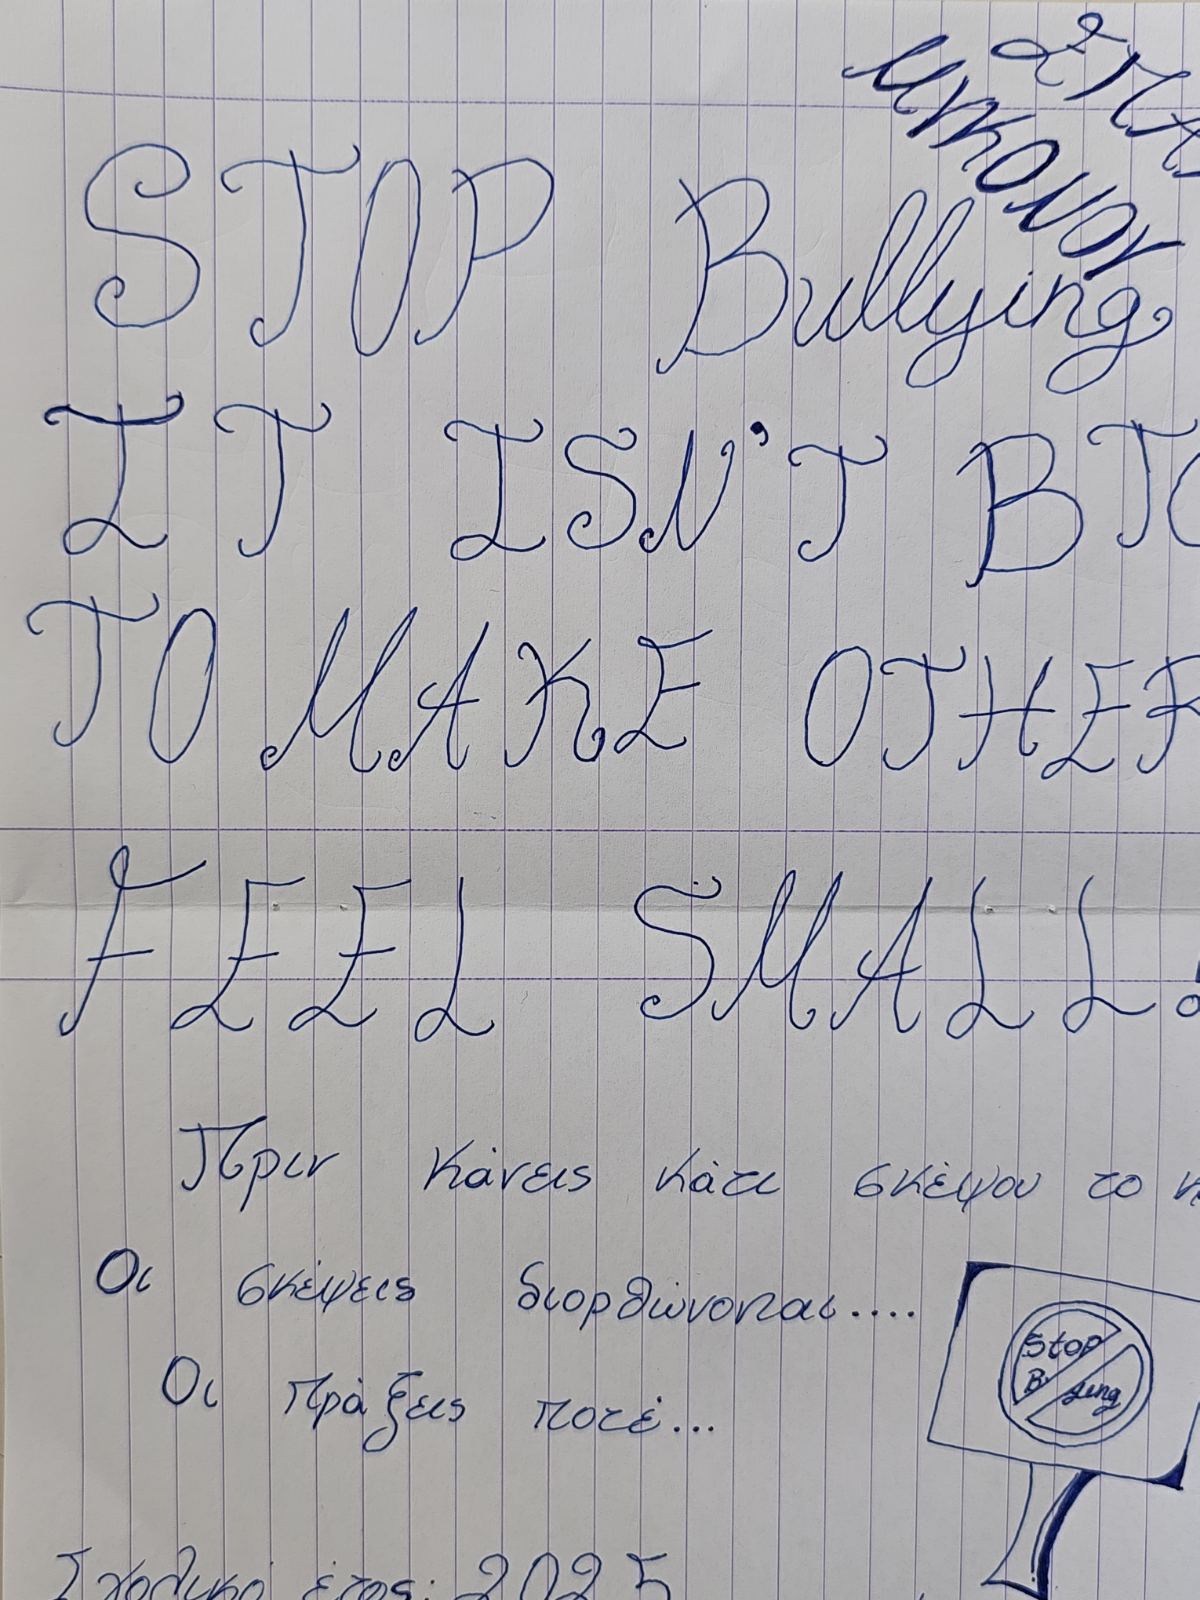 ΜΥΚΟΝΟΥ
STOP Bullying
IT ISN'T
TO MAKE OTHER
FEEL SMALL
Πριν κάνεις κάτι σκέψου το
Οι σκέψεις διορθώνονται....
Οι πράξεις ποτέ...
Stop
Σχολικό έτος: 2025